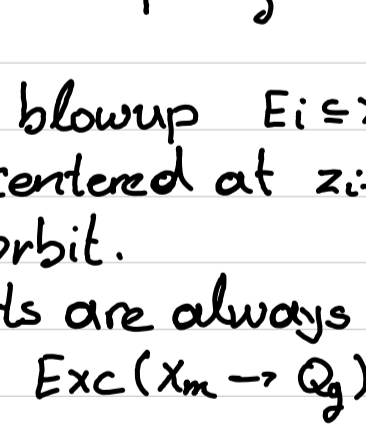 blowup E_i ⊆
centered at z_i
orbit.
ts are always
Exc(X_m → Q_g)